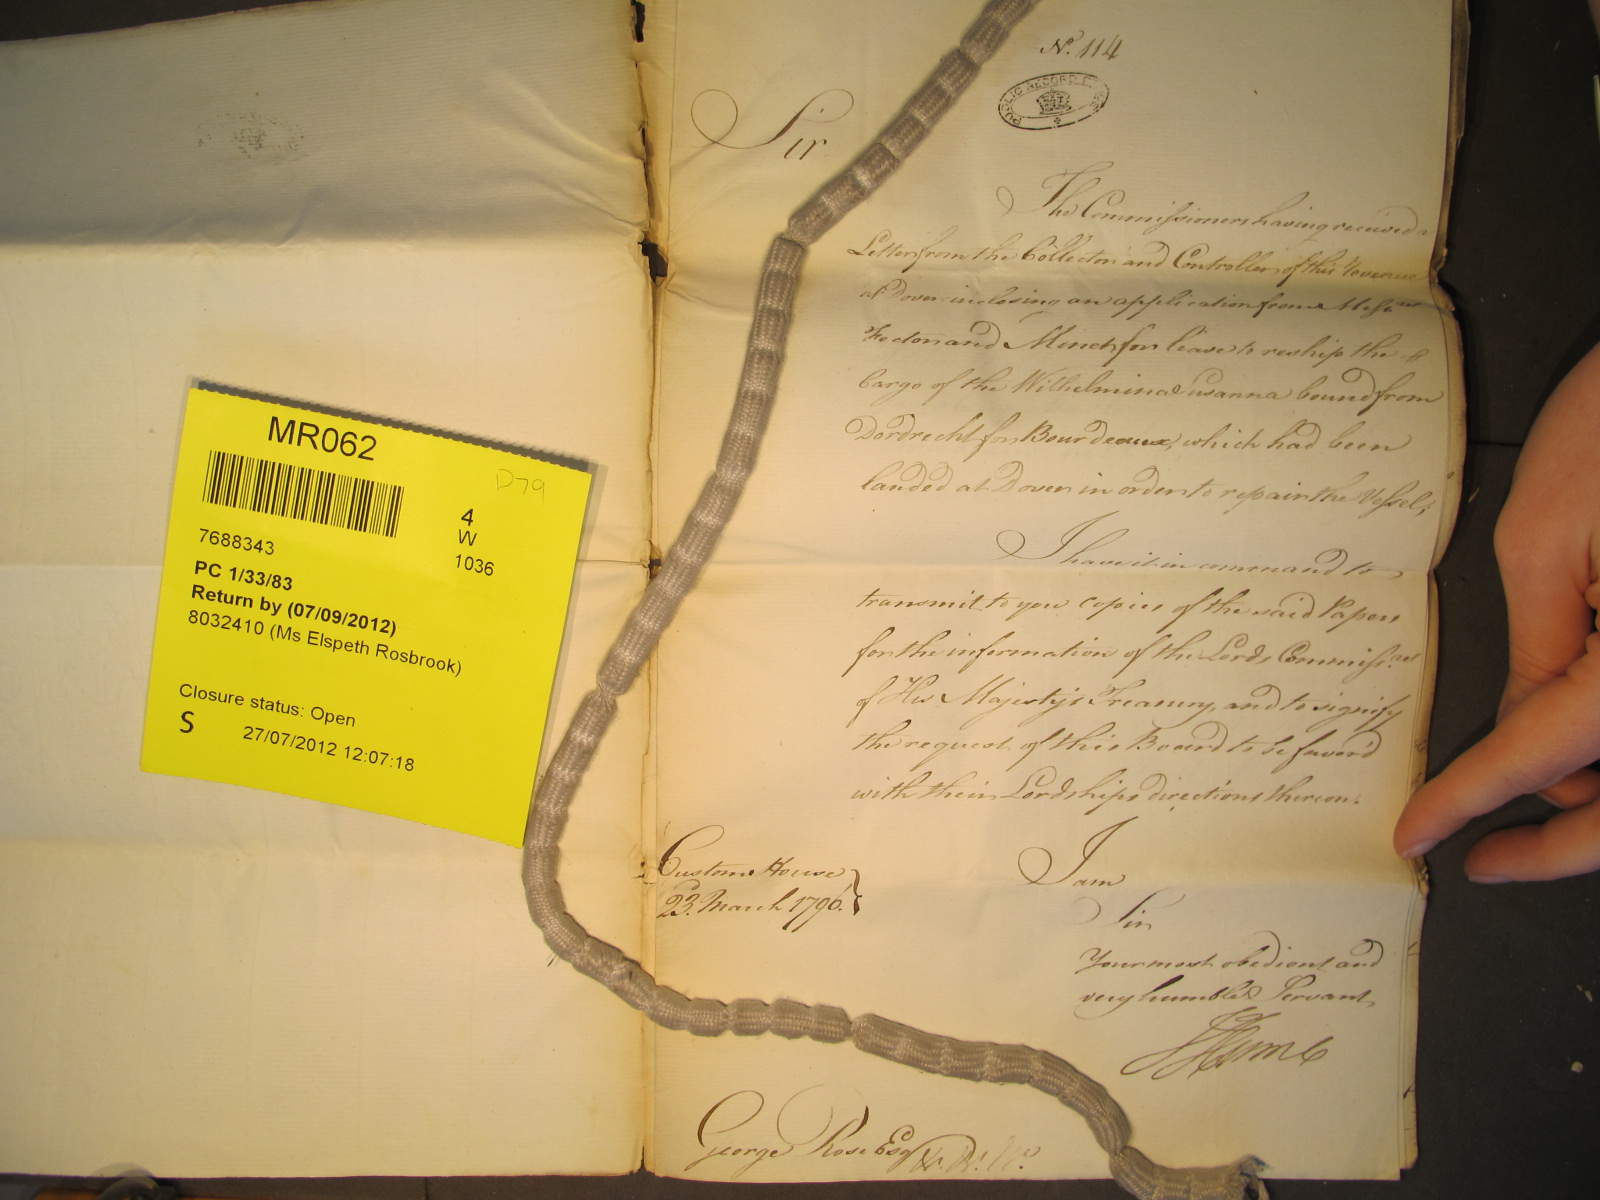 MR062
D79
4
W
1036
7688343
PC 1/33/83
Return by (07/09/2012)
8032410 (Ms Elspeth Rosbrook)
Closure status: Open
S 27/07/2012 12:07:18
N.º 114
PUBLIC RECORD OFFICE
Sir
The Commissioners having received a
Letter from the Collector and Controller of this Revenue
at Dover inclosing an application from Mess.rs
Fector and Minet for leave to reship the
Cargo of the Wilhelmina Susanna bound from
Dordrecht for Bourdeaux, which had been
landed at Dover in order to repair the Vessel;
I have it in command to
transmit to you copies of the said Papers
for the information of the Lords Commiss.rs
of His Majesty's Treasury, and to signify
the request of this Board to be favor'd
with their Lordships directions thereon.
I am
Sir
Your most obedient and
very humble Servant
Custom House
23.d March 1796.
J Hume
George Rose Esq.r &c. &c. &c.